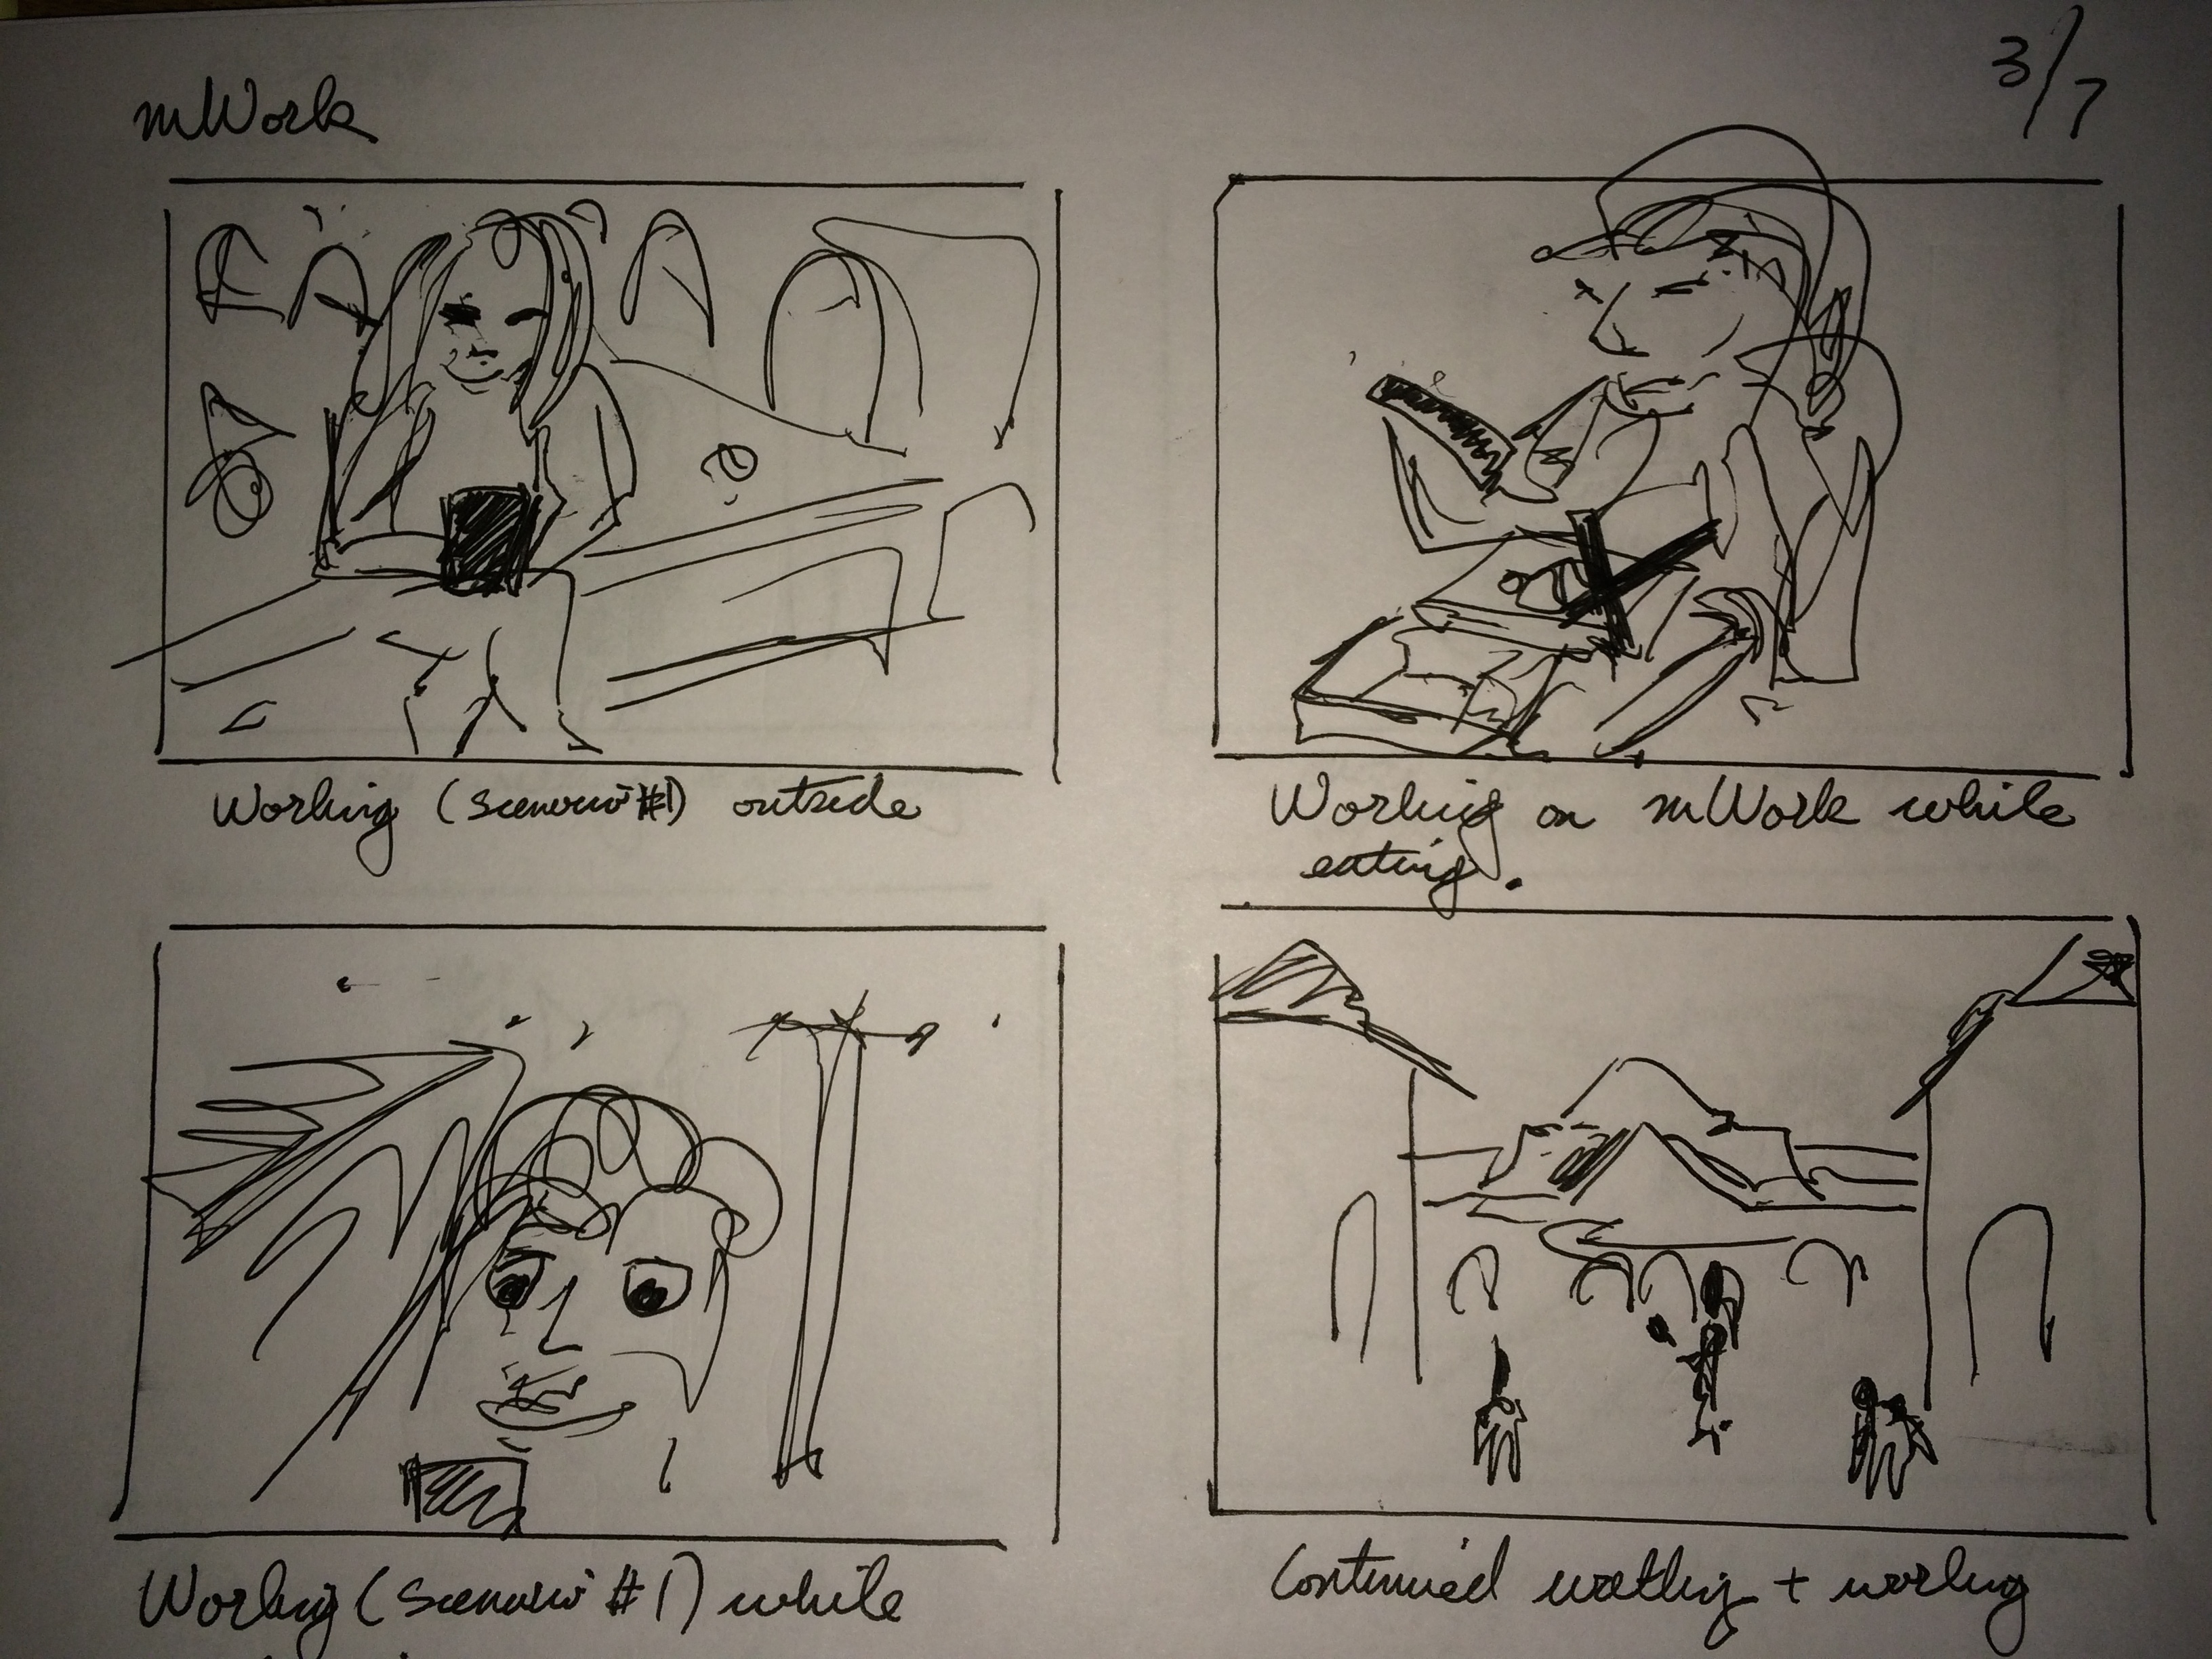 mWork
3/7
Working (scenario #1) outside
Working on mWork while
eating.
Working (scenario #1) while
Continued walking + working